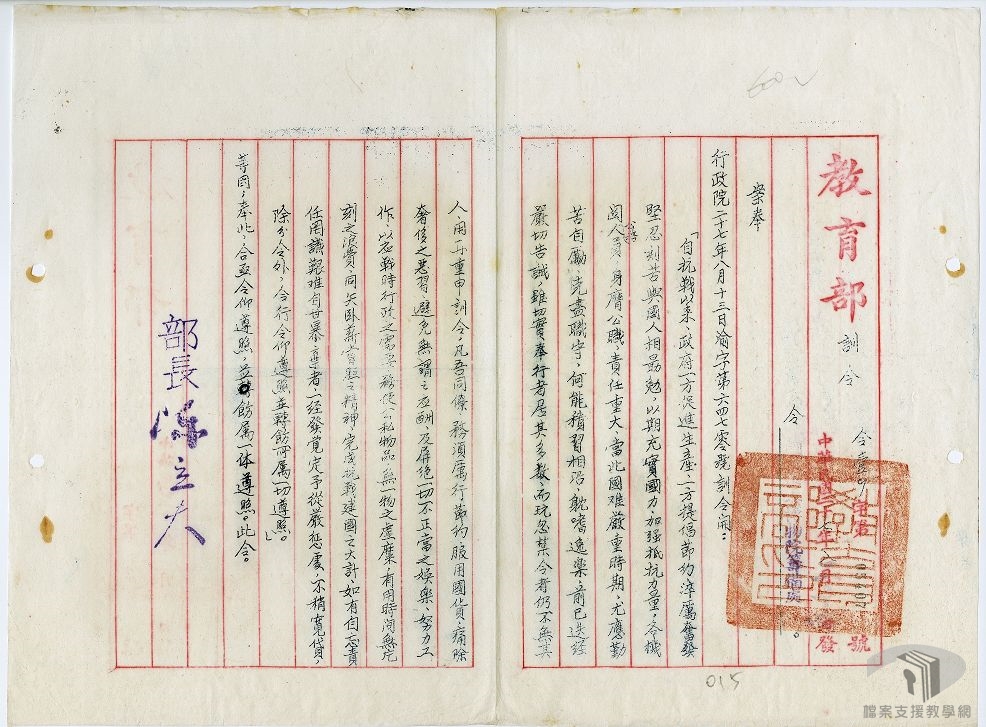 教育部
訓令
中華民國二十七年 月 日發
號
令
案奉
行政院二十七年八月十三日渝字第六四七零號訓令開:
「自抗戰以來,政府一方促進生產,一方提倡節約,淬厲奮發
堅忍刻苦與國人相勗勉,以期充實國力,加强抵抗力量,各機
關公務人員,身膺公職,責任重大,當此國难嚴重時期,尤應勤
苦自勵,克盡職守,何能積習相沿,躭嗜逸樂,前已迭經
嚴切告誡,雖切實奉行者居其多數,而玩忽禁令者仍不無其
人,用再重申訓令,凡吾同僚,務須厲行節約,服用國貨,痛除
奢侈之惡習,避免無謂之应酬,及屏絶一切不正當之娛樂,努力工
作,以应戰時行政之需要,務使公私物品無一物之虛糜,有用時間無片
刻之浪費,同矢卧薪嘗膽之精神,完成抗戰建國之大計,如有自忘責
任,罔識艱难,自甘暴棄者,一經發覺,定予從嚴懲處,不稍寬貸,
除分令外,合行令仰遵照,並轉飭所属一切遵照。」
等因,奉此,合亟令仰遵照,並轉飭属一体遵照。此令。
部長陳立夫
015
檔案支援教學網